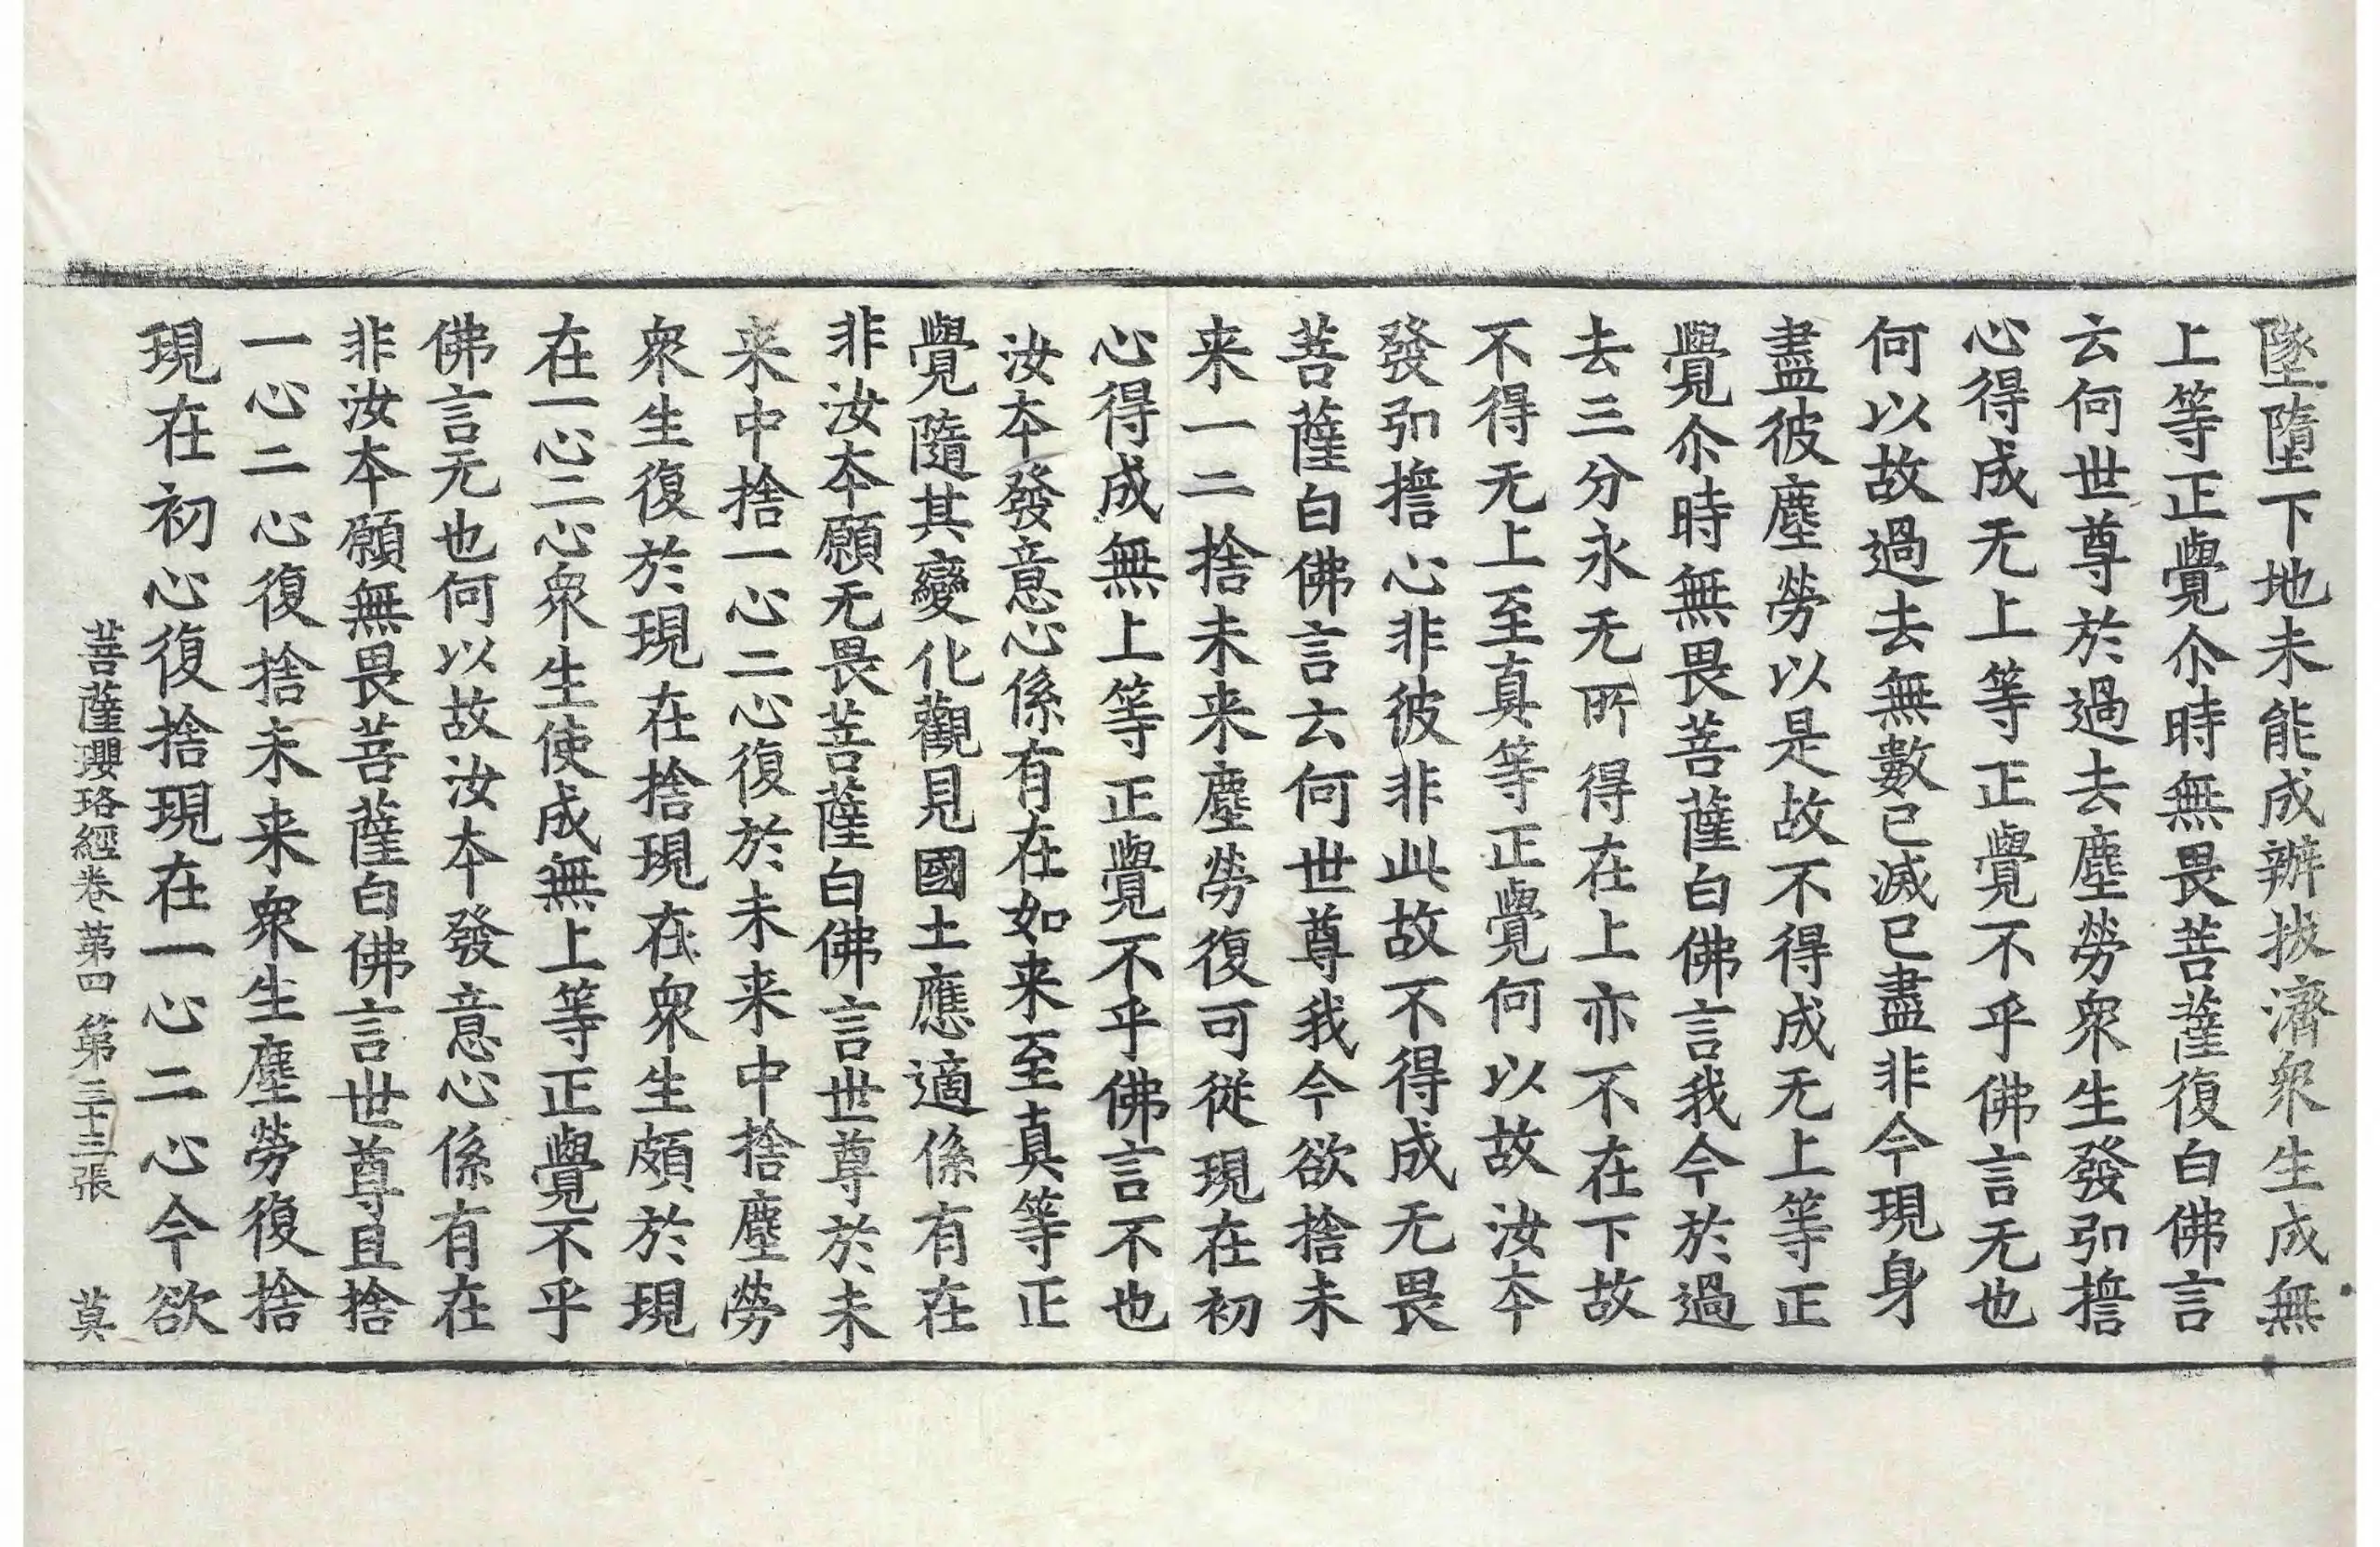 墜墮下地未能成辦拔濟衆生成無
上等正覺尒時無畏菩薩復白佛言
云何世尊於過去塵勞衆生發弘誓
心得成无上等正覺不乎佛言无也
何以故過去無數已滅已盡非今現身
盡彼塵勞以是故不得成无上等正
覺尒時無畏菩薩白佛言我今於過
去三分永无所得在上亦不在下故
不得无上至真等正覺何以故汝本
發弘誓心非彼非此故不得成无畏
菩薩白佛言云何世尊我今欲捨未
来一二捨未来塵勞復可從現在初
心得成無上等正覺不乎佛言不也
汝本發意心係有在如来至真等正
覺隨其變化觀見國土應適係有在
非汝本願无畏菩薩白佛言世尊於未
来中捨一心二心復於未来中捨塵勞
衆生復於現在捨現在衆生頗於現
在一心二心衆生使成無上等正覺不乎
佛言无也何以故汝本發意心係有在
非汝本願無畏菩薩白佛言世尊且捨
一心二心復捨未来衆生塵勞復捨
現在初心復捨現在一心二心今欲
菩薩瓔珞經卷第四 第三十三張 莫